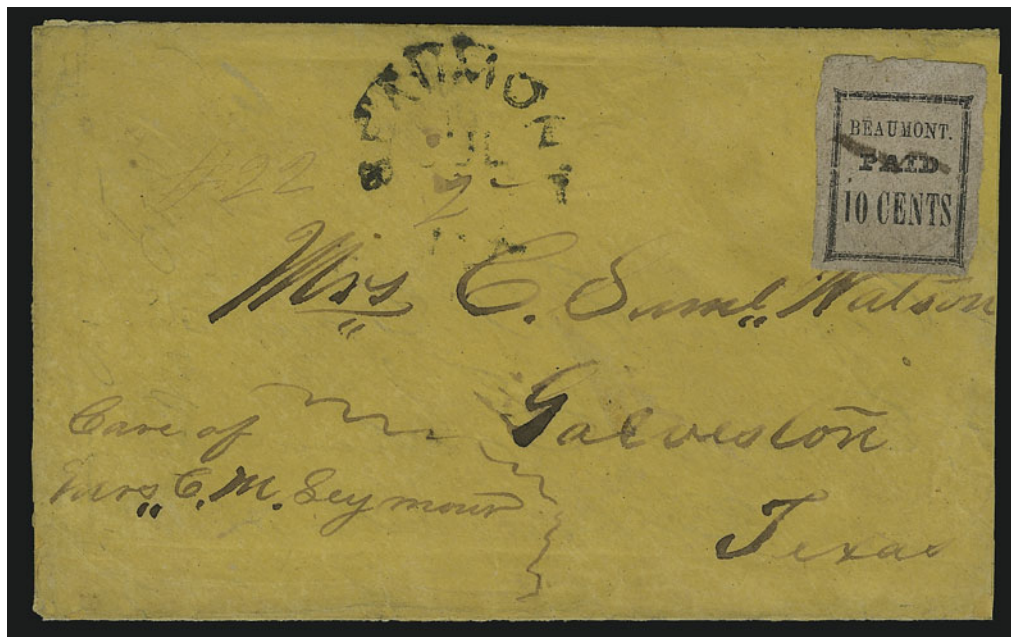 BEAUMONT
JUL
BEAUMONT.
PAID
10 CENTS
422
Mrs C. Saml. Watson
Galveston
Texas
Care of
Mrs. C. M. Seymour